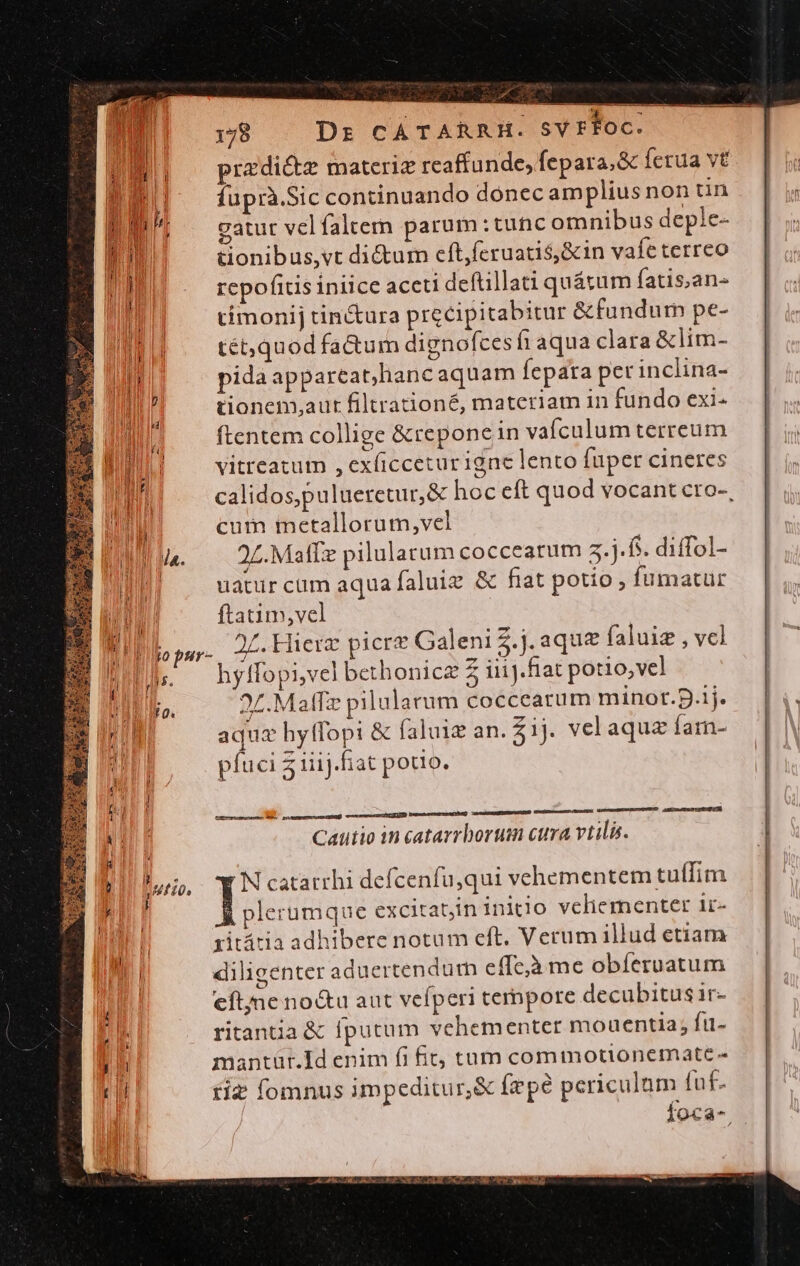 178 DE CATARRH. SVFFOC.
prædictæ materiæ reaffunde, ſepara, & ſerua vt
ſuprà. Sic continuando donec amplius non tin
gatur vel ſaltem parum: tunc omnibus deple-
tionibus, vt dictum eſt, ſeruatis, & in vaſe terreo
repoſitis iniice aceti deſtillati quātum ſatis, an-
timonij tinctura precipitabitur & fundum pe-
tēt, quod factum dignoſces ſi aqua clara & lim-
pida appareat, hanc aquam ſepara per inclina-
tionem, aut filtrationē, materiam in fundo exi-
ſtentem collige & repone in vaſculum terreum
vitreatum, exſiccetur igne lento ſuper cineres
calidos, pulueretur, & hoc eſt quod vocant cro-
cum metallorum, vel
la.
℞. Maſſæ pilularum coccearum ʒ.j.ß. diſſol-
uatur cum aqua ſaluiæ & fiat potio, ſumatur
ſtatim, vel
io pur-
℞. Hieræ picræ Galeni ℥.j. aquæ ſaluiæ, vel
s.
hyſſopi, vel bethonicæ ℥ iiij. fiat potio, vel
io.
℞. Maſſæ pilularum coccearum minor. ℈.ij.
aquæ hyſſopi & ſaluiæ an. ℥ij. vel aquæ ſam-
pſuci ℥ iiij. fiat potio.
Cautio in catarrhorum cura vtilis.
utio.
IN catarrhi deſcenſu, qui vehementem tuſſim
plerumque excitat, in initio vehementer ir-
ritātia adhibere notum eſt. Verum illud etiam
diligenter aduertendum eſſe, à me obſeruatum
eſt, ne noctu aut veſperi tempore decubitus ir-
ritantia & ſputum vehementer mouentia, ſu-
mantur. Id enim ſi fit, tum commotione mate-
riæ ſomnus impeditur, & ſæpè periculum ſuf-
foca-